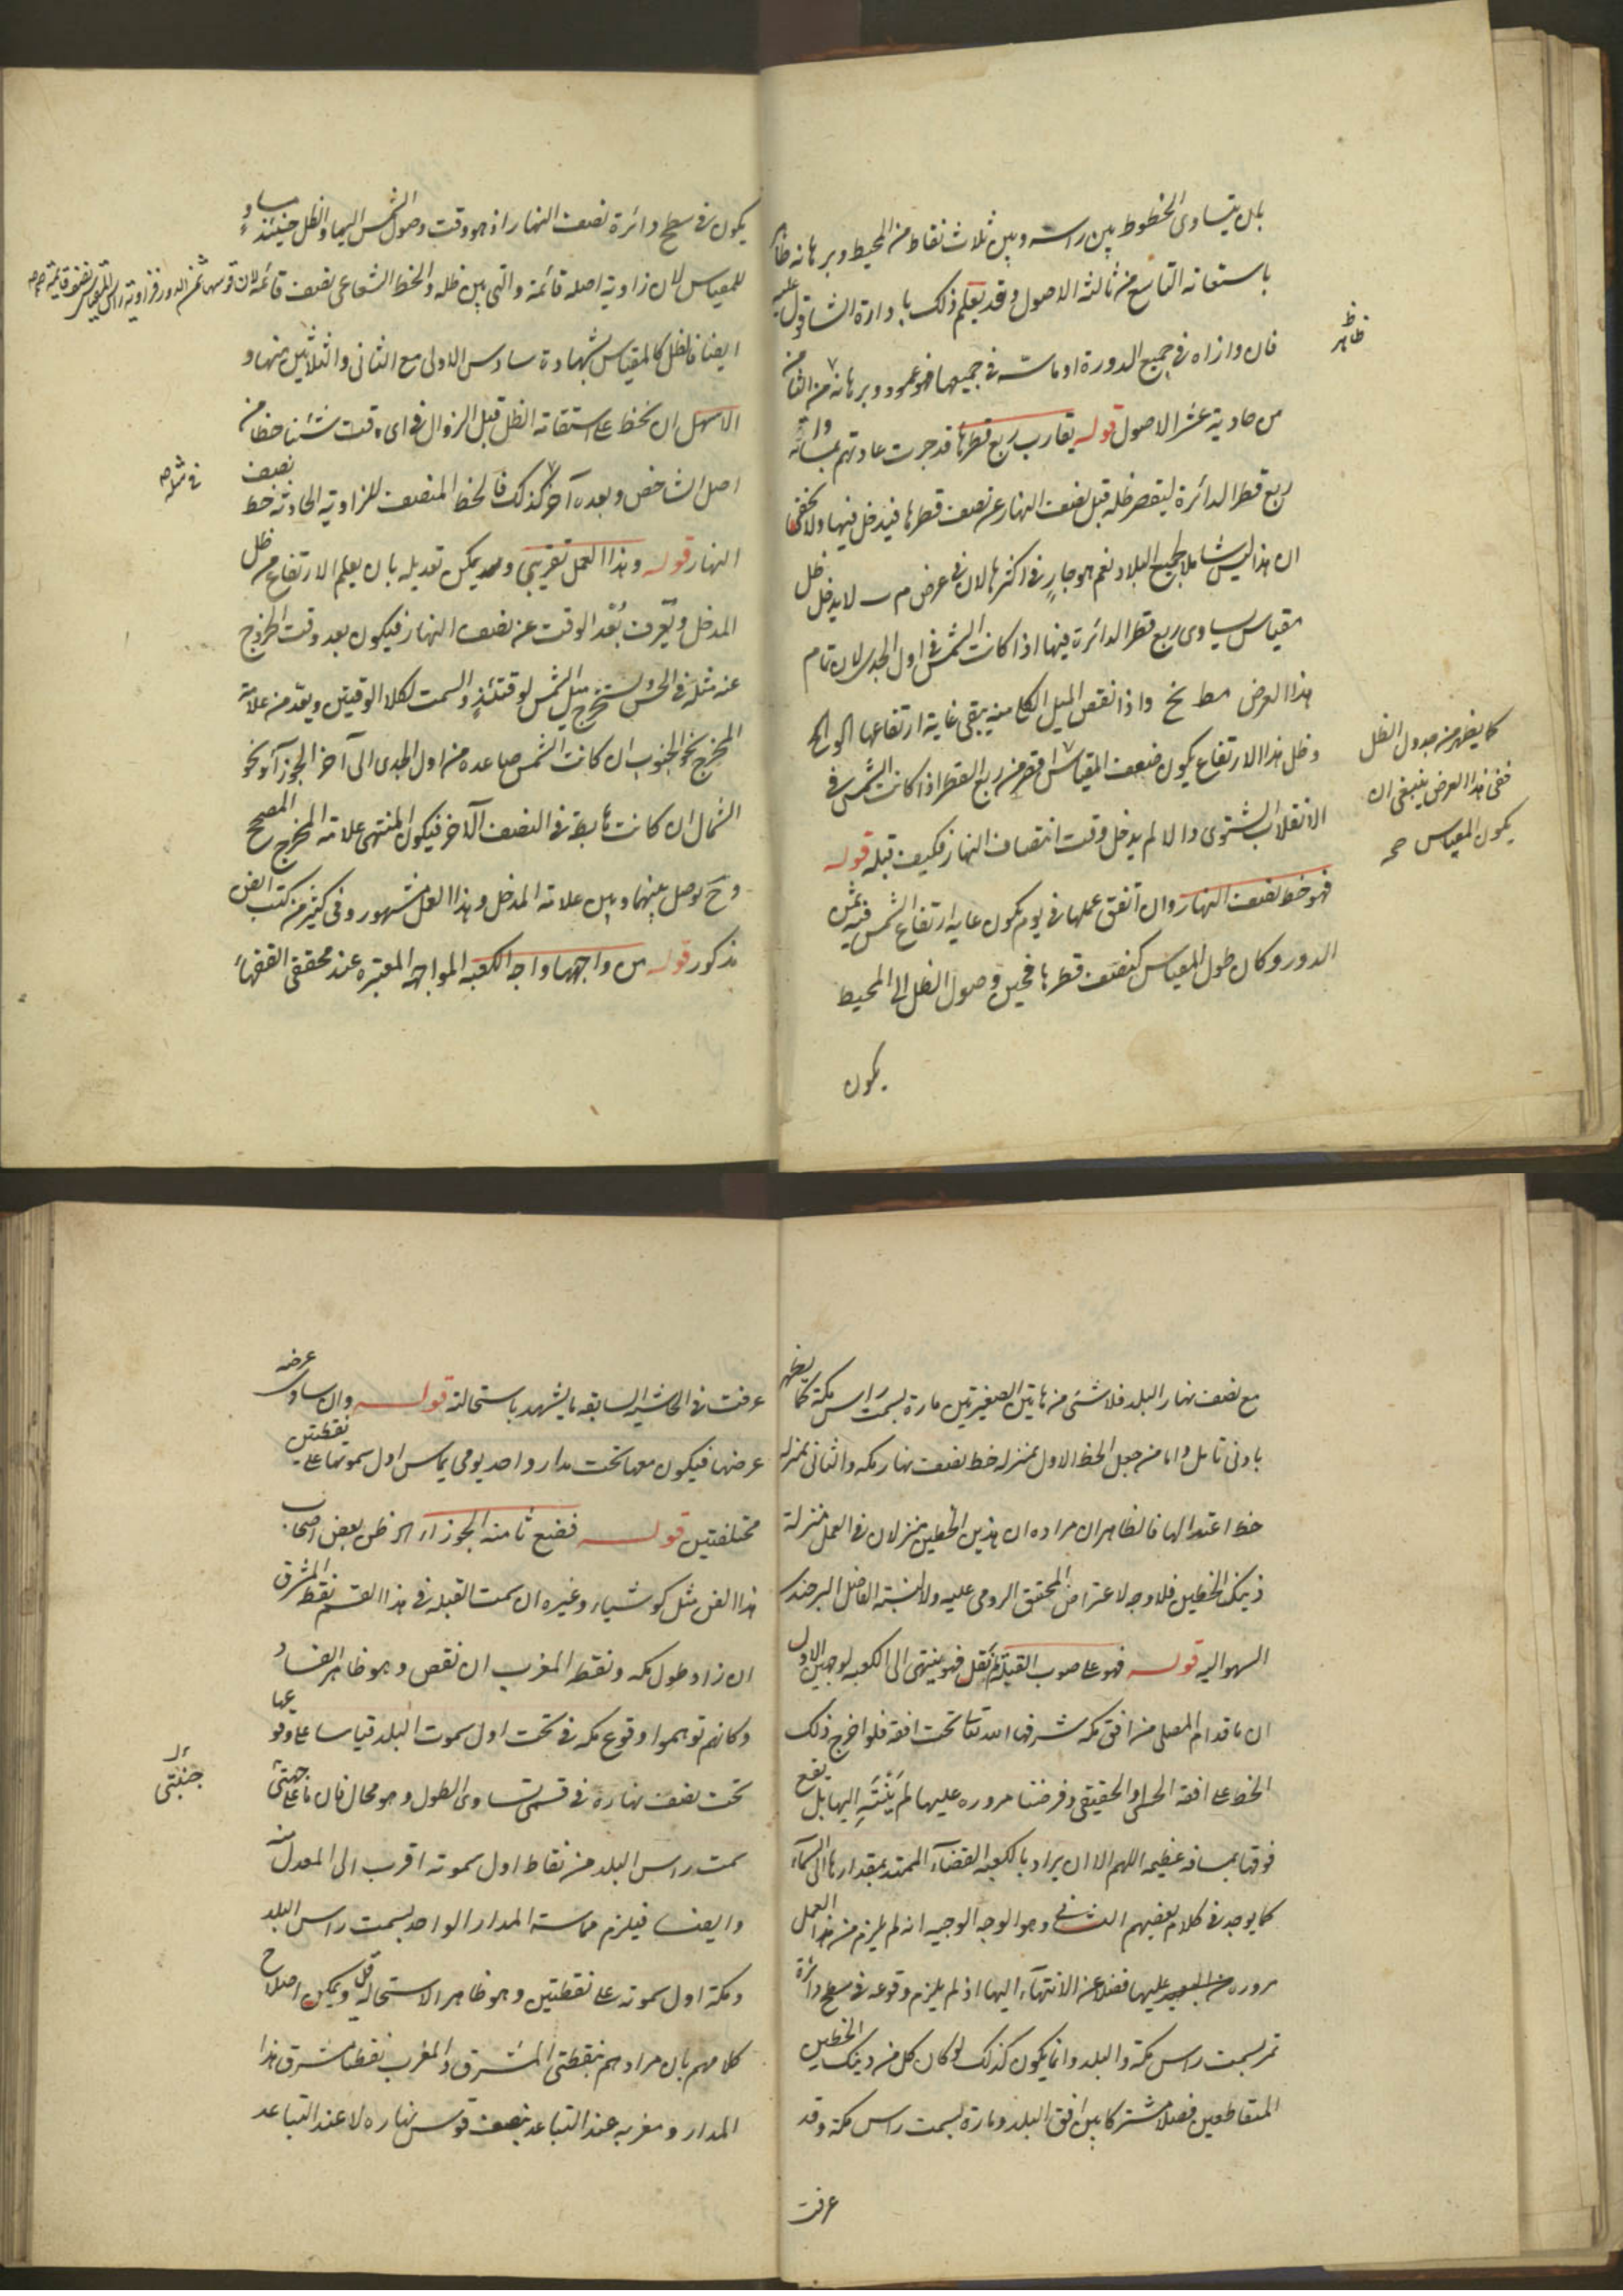 بان يتساوى الخطوط بين راسه وبين ثلاث نقاط من المحيط وبرهانه ظاهر
باستعانة التاسع من ثالثة الاصول وقد يعلم ذلك بادارة الشاقول عليه
فان وازاه في جميع الدورة او ماسه في جميعها فهو عمود وبرهانه من الثامن
من حادية عشر الاصول قوله يقارب ربع قطرها قد جرت عادتهم
ربع قطر الدائرة ليقصر ظله قبل نصف النهار عن نصف قطرها فيدخل فيها ولا يخفى
ان هذا ليس شاملا لجميع البلاد نعم هو جار في اكثرها لان في عرض م ب لا يدخل ظل
مقياس يساوى ربع قطر الدائرة فيها اذا كانت الشمس في اول الجدى لان تمام
هذا العرض مط نح واذا نقص الميل الكلى منه يبقى غاية ارتفاعها
وظل هذا الارتفاع يكون ضعف المقياس اقصر من ربع القطر اذا كانت الشمس في
الانقلاب الشتوى والا لم يدخل وقت انتصاف النهار فكيف قبله قوله
فهو خط نصف النهار وان اتفق عملها في يوم يكون غاية ارتفاع الشمس فيه ثمن
الدور وكان طول المقياس كنصف قطرها فحين وصول الظل الى المحيط
يكون
ظاهر
كما يظهر من جدول الظل
ففي هذا العرض ينبغي ان
يكون المقياس صح
يكون في سطح دائرة نصف النهار اذ هو وقت وصول الشمس اليها والظل حينئذ مساو
للمقياس لان زاوية اصله قائمة والتي بين ظله والخط الشعاعى نصف قائمة لان قوسها ثمن الدور فزاوية راس المقياس نصف قايمة صح
ايضا فالظل كالمقياس بشهادة سادس الاولى مع الثانى والثلاثين منها و
الاسهل ان يخط على استقامة الظل قبل الزوال في اى وقت شئنا خطا من
اصل الشاخص وبعده آخر كذلك فالخط المنصف للزاوية الحادثة خط نصف
في مثله صح
النهار قوله وهذا العمل تقريبي وقد يمكن تعديله بان يعلم الارتفاع من ظل
المدخل ويعرف بُعد الوقت عن نصف النهار فيكون بعد وقت الخروج
عنه مثله في الحس ويستخرج ميل الشمس لوقتئذٍ والسمت لكلا الوقتين ويعد من علامة
المخرج نحو الجنوب ان كانت الشمس صاعدة من اول الجدى الى آخر الجوزآ او نحو
الشمال ان كانت هابطة في النصف الآخر فيكون المنتهى علامة المخرج المصحح
وح يوصل بينها وبين علامة المدخل وهذا العمل مشهور وفي كثير من كتب الفن
مذكور قوله من واجهها واجه الكعبة المواجهة المعتبرة عند محققى الفقهاء
مع نصف نهار البلد فلا شئ من هاتين الصغيرتين مارة بسمت راس مكة كما يظهر
بادنى تامل واما من جعل الخط الاول بمنزلة خط نصف نهار مكة والثانى بمنزلة
خط اعتدالها فالظاهر ان مراده ان هذين الخطين ينزلان في العمل منزلة
ذينك الخطين فلا وجه لاعتراض المحقق الرومى عليه ولا لنسبة الفاضل البرجندى
السهو اليه قوله فهو على صوب القبلة لم نقل فهو ينتهى الى الكعبة لوجهين الاول
ان ما قدام المصلى من افق مكة شرفها الله تعا تحت افقه فلو اخرج ذلك
الخط على افقه الحسى والحقيقى وفرضنا مروره عليها لم ينته اليها بل يقع
فوقها بمسافة عظيمة اللهم الا ان يراد بالكعبة الفضآء الممتد بمقدارها الى السمآء
كما يوجد في كلام بعضهم الثانى وهو الوجه الوجيه انه لم يلزم من هذا العمل
مروره عليها فضلا عن الانتهآء اليها اذ لم يلزم وقوعه في سطح دائرة
تمر بسمت راس مكة والبلد وانما يكون كذلك لو كان كل من ذينك الخطين
المتقاطعين فصلا مشتركا بين افق البلد ومارة بسمت راس مكة وقد
عرفت
عرفت في الحاشية السابقة ما يشهد باستحالته قوله وان ساوى عرضه
عرضها فيكون معها تحت مدار واحد يومى يماس اول سموتها على نقطتين
مختلفتين قوله فضع ثامنة الجوزآء الخ ظن بعض اصحاب
هذا الفن مثل كوشيار وغيره ان سمت القبلة في هذا القسم نقطة المشرق
ان زاد طول مكة ونقطة المغرب ان نقص وهو ظاهر الفساد
وكانهم توهموا وقوع مكة في تحت اول سموت البلد قياسا على وقوعها
تحت نصف نهاره في قسمى تساوى الطول وهو محال فان ما على جهتى
جنبتى
سمت راس البلد من نقاط اول سموته اقرب الى المعدل منه
وايضا فيلزم مماسة المدار الواحد بسمت راس البلد
ومكة اول سموته على نقطتين وهو ظاهر الاستحالة قيل ويمكن اصلاح
كلامهم بان مرادهم بنقطتى المشرق والمغرب نقطتا مشرق هذا
المدار ومغربه عند التباعد بنصف قوس نهاره لا عند التباعد